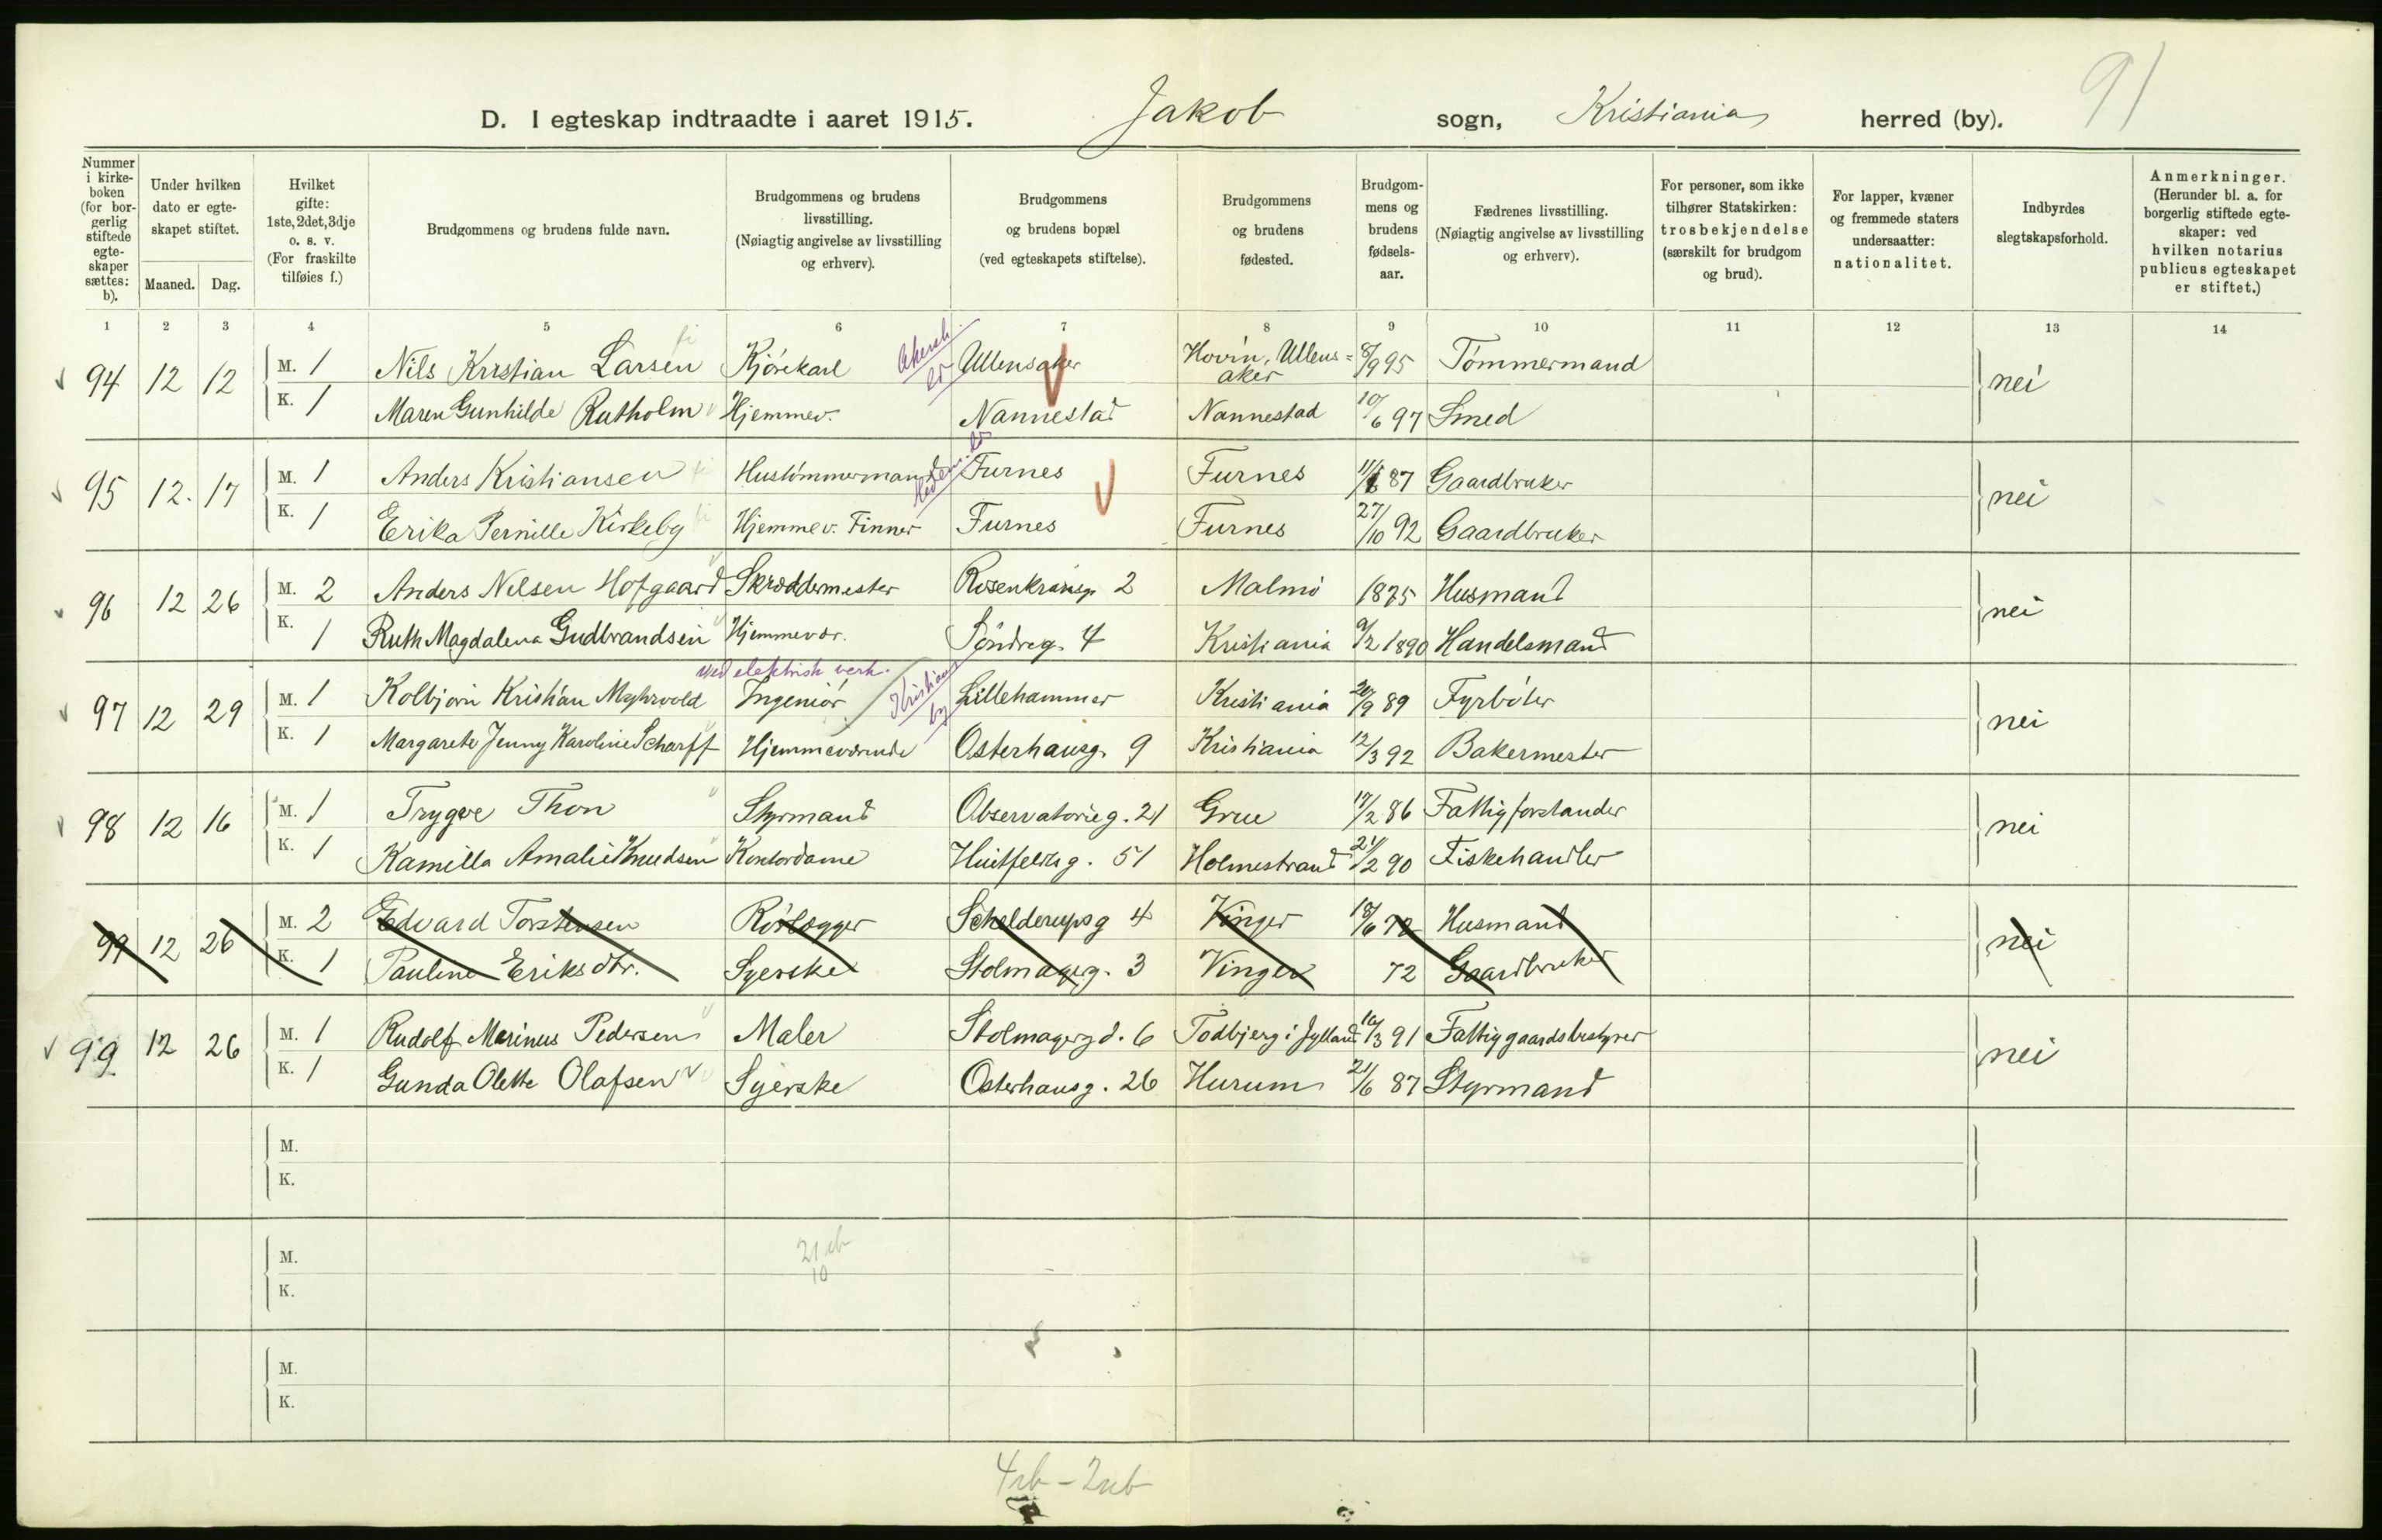 91
D. I egteskap indtraadte i aaret 1915. Jakob sogn, Kristiania herred (by).
Nummer i kirkeboken (for borgerlig stiftede egteskaper sættes: b).
Under hvilken dato er egteskapet stiftet.
Maaned. Dag.
Hvilket gifte: 1ste, 2det, 3dje o. s. v. (For fraskilte tilføies f.)
Brudgommens og brudens fulde navn.
Brudgommens og brudens livsstilling. (Nøiagtig angivelse av livsstilling og erhverv).
Brudgommens og brudens bopæl (ved egteskapets stiftelse).
Brudgommens og brudens fødested.
Brudgommens og brudens fødselsaar.
Fædrenes livsstilling. (Nøiagtig angivelse av livsstilling og erhverv).
For personer, som ikke tilhører Statskirken: trosbekjendelse (særskilt for brudgom og brud).
For lapper, kvæner og fremmede staters undersaatter: nationalitet.
Indbyrdes slegtskapsforhold.
Anmerkninger. (Herunder bl. a. for borgerlig stiftede egteskaper: ved hvilken notarius publicus egteskapet er stiftet.)
1 2 3 4 5 6 7 8 9 10 11 12 13 14
94 12 12 M. 1 Nils Kristian Larsen Kjörekarl Akersh. Ullensaker Hovin, Ullens=aker 8/9 95 Tömmermand nei
K. 1 Maren Gunhilde Rutholm Hjemmev. Nannestad Nannestad 10/6 97 Smed
95 12. 17 M. 1 Anders Kristiansen Hustömmermand Hedem. Furnes Furnes 87 Gaardbruker nei
K. 1 Erika Pernille Kirkeby Hjemmev. Finner Furnes Furnes 27/10 92 Gaardbruker
96 12 26 M. 2 Anders Nilsen Hofgaard Skræddermester Rosenkransg. 2 Malmö 1875 Husmand nei
K. 1 Ruth Magdalena Gudbrandsen Hjemmevær. Söndreg. 4 Kristiania 9/2 1890 Handelsmand
ved elektrisk verk.
97 12 29 M. 1 Kolbjörn Kristian Myhrvold Ingeniör Kristians by Lillehammer Kristiania 20/9 89 Fyrböter nei
K. 1 Margarete Jenny Karoline Scharff Hjemmeværende Osterhausg. 9 Kristiania 12/3 92 Bakermester
98 12 16 M. 1 Trygve Thon Styrmand Observatorieg. 21 Grue 17/2 86 Fattigforstander nei
K. 1 Kamilla Amalie Knudsen Kontordame Huitfeldtsg. 51 Holmestrand 21/2 90 Fiskehandler
99 12 26 M. 2 Edvard Torstensen Rörlægger Schelderupsg 4 Vinger 18/6 72 Husmand nei
K. 1 Pauline Eriksdtr. Syerske Stolmagerg. 3 Vinger 72 Gaardbruker
99 12 26 M. 1 Rudolf Marinus Pedersen Maler Stolmagerg d. 6 Todbjerg i Jylland 16/3 91 Fattiggaardsbestyrer nei
K. 1 Gunda Olette Olafsen Syerske Osterhausg. 26 Hurum 21/6 87 Styrmand
M.
K.
M. 21 ub
10
K.
M.
K.
4 rb - 2 ub